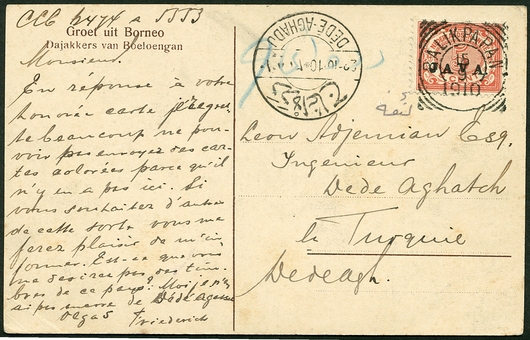 CCC 2474 a 5553
Groet uit Borneo
Dajakkers van Boeloengan
Monsieur.
En réponse à votre
honorée carte je regret-
te beaucoup ne pou-
voir pas envoyez des car-
tes colorées parce qu'il
n'y en a pas ici. Si
vous souhaitez d'autres
de cette sorte vous me
ferez plaisir de m'in-
former. Est-ce que vous
me desirez pas des tim-
bres de ce pays? Moi je n'
ai pas encore de Dédé Agatsch
Friederich
DEDE-AGHADJ
BALIKPAPAN
JAVA.
1910
Leon Adjemian Esq.
Ingenieur
Dede Aghatch
la Turquie
Dedeagh.